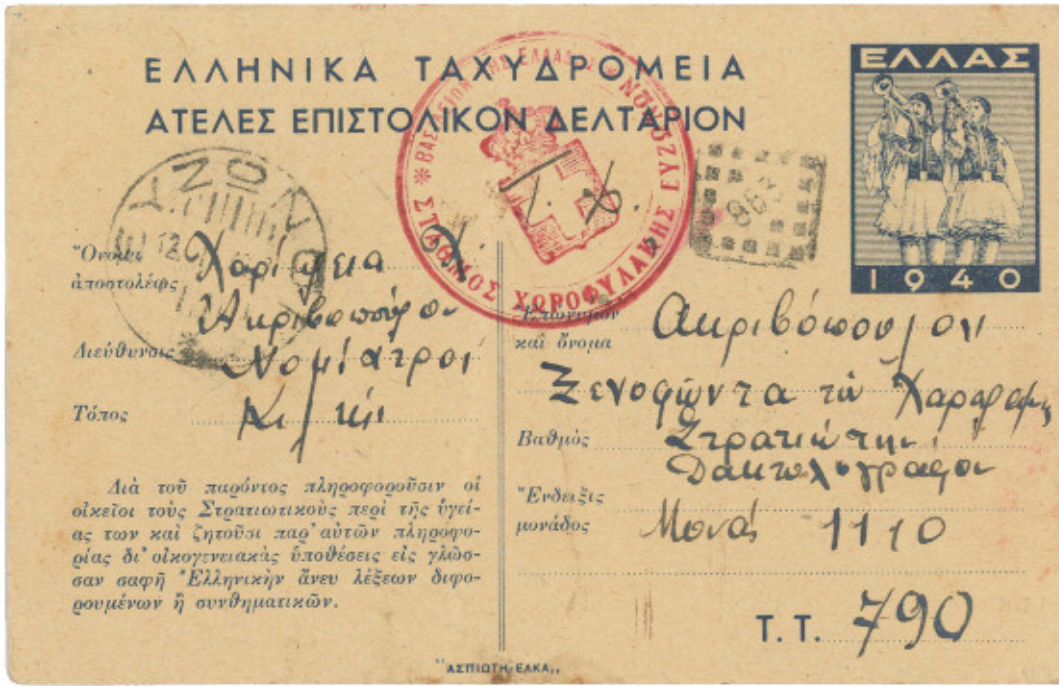 ΕΛΛΗΝΙΚΑ ΤΑΧΥΔΡΟΜΕΙΑ
ΑΤΕΛΕΣ ΕΠΙΣΤΟΛΙΚΟΝ ΔΕΛΤΑΡΙΟΝ
ΕΛΛΑΣ
1940
ΒΑΣΙΛΕΙΟΝ ΤΗΣ ΕΛΛΑΔΟΣ
ΣΤΑΘΜΟΣ ΧΩΡΟΦΥΛΑΚΗΣ ΕΥΖΩΝΩΝ
ΕΥΖΩΝΟΙ
Ὄνομα
ἀποστολέως
Διεύθυνσις
Τόπος
Κιλκίς
Διὰ τοῦ παρόντος πληροφοροῦσιν οἱ
οἰκεῖοι τοὺς Στρατιωτικοὺς περὶ τῆς ὑγεί-
ας των καὶ ζητοῦσι παρ' αὐτῶν πληροφο-
ρίας δι' οἰκογενειακὰς ὑποθέσεις εἰς γλῶσ-
σαν σαφῆ Ἑλληνικὴν ἄνευ λέξεων διφο-
ρουμένων ἢ συνθηματικῶν.
Ἐπώνυμον Ακριβόπουλον
καὶ ὄνομα
Ξενοφώντα τοῦ
Βαθμὸς Στρατιώτην
Δακτυλογράφον
Ἔνδειξις
μονάδος Μονάς 1110
Τ. Τ. 790
"ΑΣΠΙΩΤΗ-ΕΛΚΑ,,